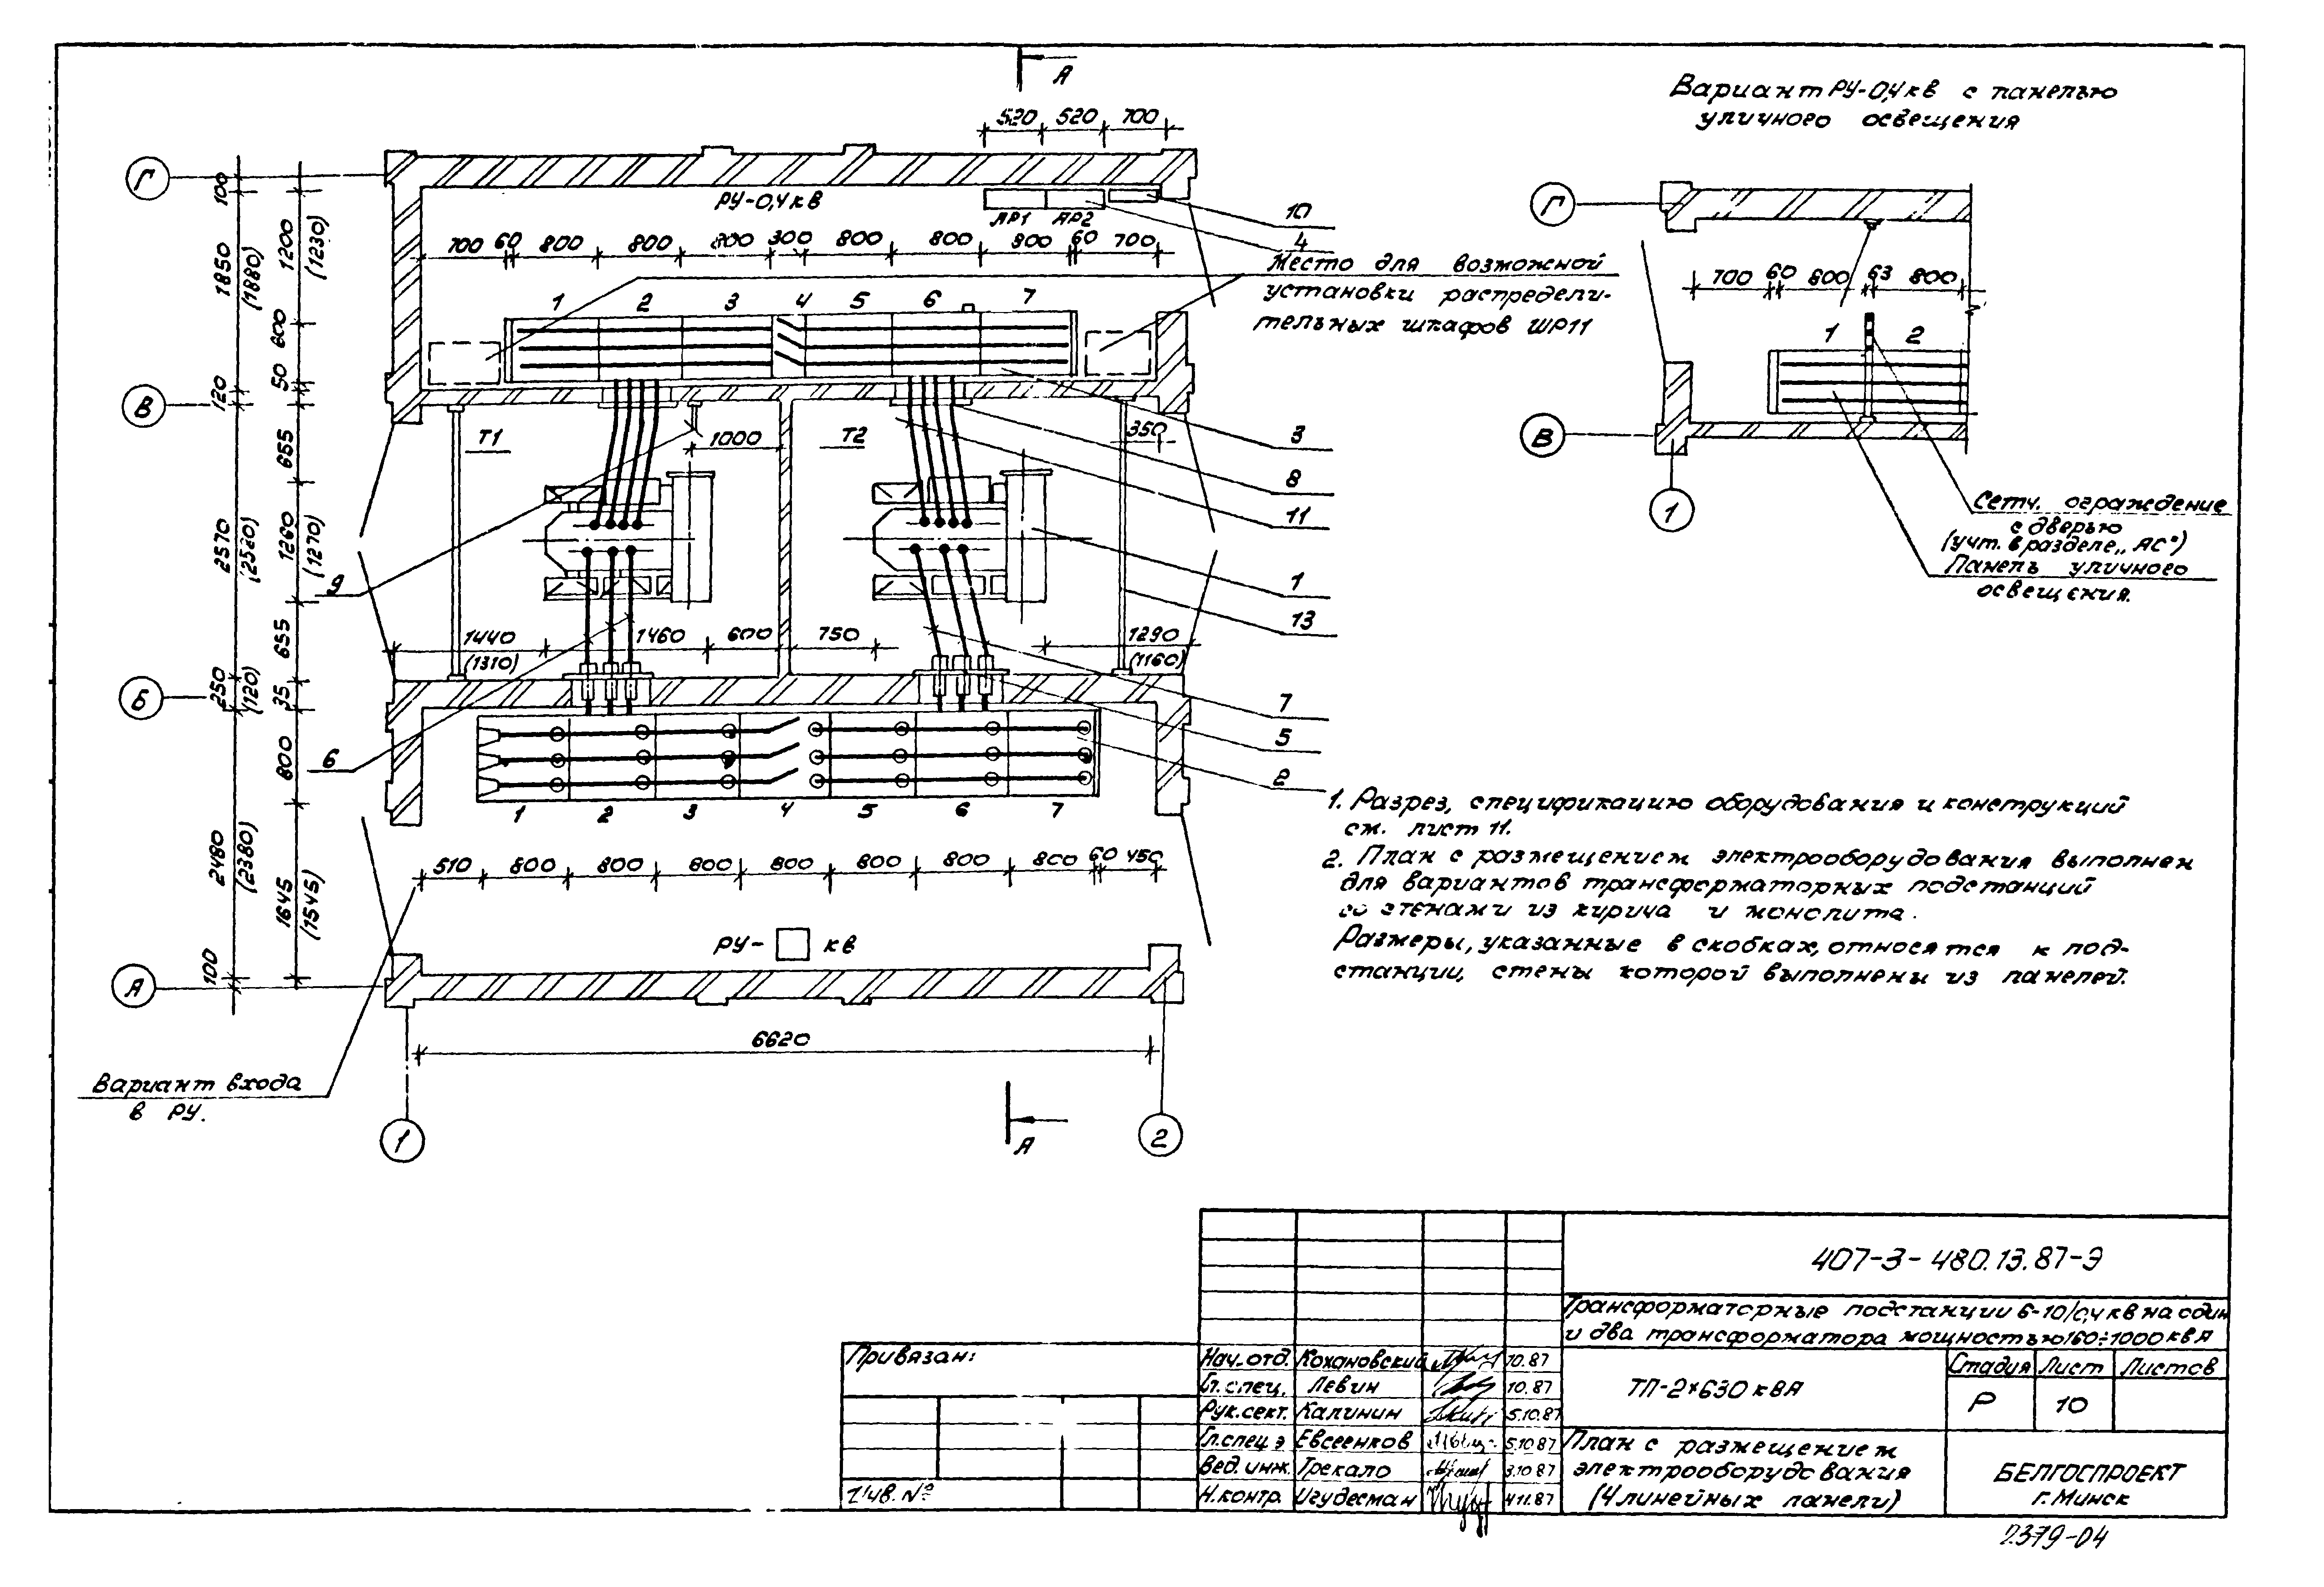 А
Вариант РУ-0,4кв с панелью
уличного освещения
520 520 700
Г
РУ-0,4кв
ЯР1 ЯР2
10
4
700 60 800 800 800 300 800 800 800 60 700
Место для возможной
установки распредели-
тельных шкафов ШР11
1 2 3 4 5 6 7
100
1850
(1880)
120
2570
(2520)
250
(120)
2480
(2380)
100
1200
(1230)
800
50
655
1260
(1270)
655
35
800
1645
(1545)
В
Т1
1000
Т2
350
3
8
11
1
13
9
1440
(1310)
1460
600
750
1290
(1160)
Б
7
5
2
6
1 2 3 4 5 6 7
510 800 800 800 800 800 800 800 60 450
РУ- кв
А
6620
Вариант входа
в РУ.
1
2
А
Г
700 60 800 63 800
1 2
В
1
Сетч. ограждение
с дверью
(учт. в разделе „АС")
Панель уличного
освещения.
1. Разрез, спецификацию оборудования и конструкций
см. лист 11.
2. План с размещением электрооборудования выполнен
для вариантов трансформаторных подстанций
со стенами из кирича и монолита.
Размеры, указанные в скобках, относятся к под-
станции, стены которой выполнены из панелей.
407-3-480.13.87-Э
Трансформаторные подстанции 6-10/0,4кв на один
и два трансформатора мощностью 160÷1000 кВА
Привязан:
Инв. №
Нач. отд. Кохановский 10.87
Гл. спец. Левин 10.87
Рук.сект. Калинин 5.10.87
Гл.спец э Евсеенков 5.10 87
Вед. инж. Трекало 3.10 87
Н.контр. Игудесман 4 11.87
ТП-2×630 кВА
Стадия Лист Листов
Р 10
План с размещением
электрооборудования
(4 линейных панели)
БЕЛГОСПРОЕКТ
г. Минск
2379-04